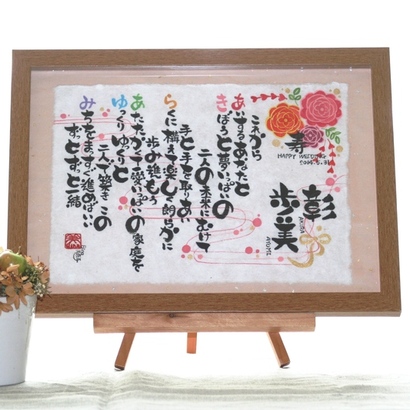 寿
HAPPY WEDDING
彰
歩美
AYUMI
これから
あいするあなたと
きぼうと夢いっぱいの
二人の未来にむけて
手と手を取りあい
らくに構えて楽しく朗らかに
歩み進もう
あたたかくて笑いっぱいの家庭を
ゆっくりゆっくりと
二人で築き この
みちをまっすぐ進めばいい
ずっとずっと一緒